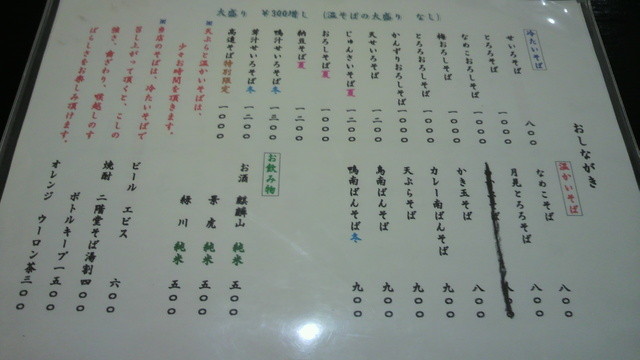 おしながき
冷たいそば
せいろそば 八〇〇
とろろそば
なめこおろしそば
梅おろしそば
とろろおろしそば
かんずりおろしそば
天せいろそば
じゅんさいそば夏
おろしそば夏
納豆そば夏 一二〇〇
鴨汁せいろそば冬 一三〇〇
芹汁せいろそば冬 一二〇〇
高遠そば特別限定 一〇〇〇
大盛り ¥300増し (温そばの大盛り なし)
※天ぷらと温かいそばは、
少々お時間を頂きます。
※当店のそばは、冷たいそばで
召し上がって頂くと、こしの
強さ、歯ざわり、喉越しのす
ばらしさをお楽しみ頂けます。
温かいそば
八〇〇
なめこそば 八〇〇
月見とろろそば 九〇〇
かき玉そば 八〇〇
カレー南ばんそば 九〇〇
天ぷらそば 九〇〇
鳥南ばんそば 九〇〇
鴨南ばんそば冬 九〇〇
お飲み物
お酒 麒麟山 純米 五〇〇
景虎 純米 五〇〇
緑川 純米 五〇〇
ビール エビス 六〇〇
焼酎 二階堂そば湯割 四〇〇
ボトルキープ 一五〇〇
オレンジ ウーロン茶 三〇〇